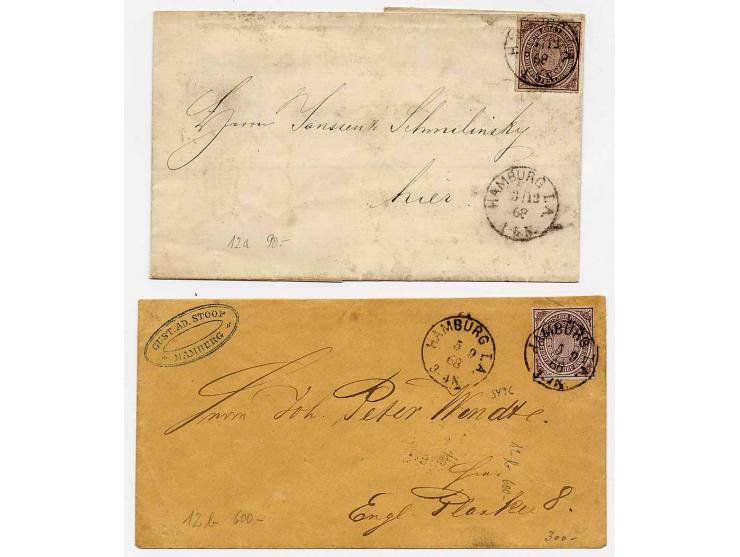 Herrn Janssen & Schmilinsky
hier.
HAMBURG I.A.
3/12
68
12a 90.-
GUST. AD. STOOP
HAMBURG
HAMBURG I.A.
5 9
68
HAMBURG I.A.
Herrn Joh. Peter Wendte.
12b 600.-
Hier
Engl. Planke 8.
12b 600.-
300.-